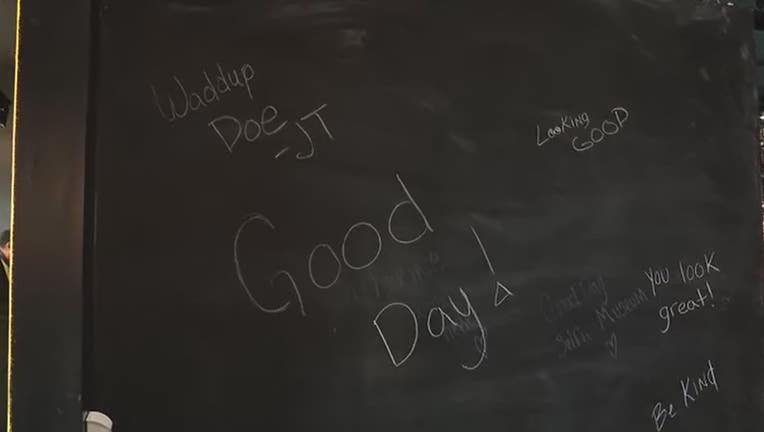 Waddup
Doe
-JT
Looking
GOOD
Good
Day!
Good Day
Selfie Museum
You look
great!
Be Kind